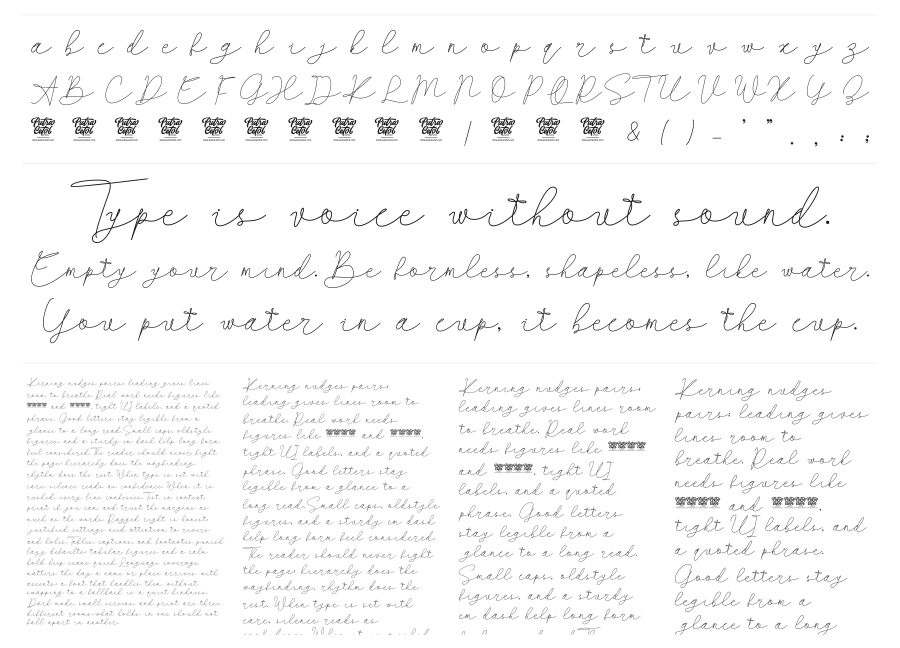 a b c d e f g h i j k l m n o p q r s t u v w x y z
A B C D E F G H I J K L M N O P Q R S T U V W X Y Z
Putra Cetol Putra Cetol Putra Cetol Putra Cetol Putra Cetol Putra Cetol Putra Cetol Putra Cetol Putra Cetol Putra Cetol | Putra Cetol Putra Cetol Putra Cetol & ( ) - ' " . , : ;
Type is voice without sound.
Empty your mind. Be formless, shapeless, like water.
You put water in a cup, it becomes the cup.
Kerning nudges pairs; leading gives lines
room to breathe. Real work needs figures like
and , tight UI labels, and a quoted
phrase. Good letters stay legible from a
glance to a long read. Small caps, oldstyle
figures, and a sturdy en dash help long form
feel considered. The reader should never fight
the page; hierarchy does the wayfinding,
rhythm does the rest. When type is set with
care, silence reads as confidence. When it is
rushed, every line confesses. Test in context,
print if you can, and trust the margins as
much as the words. Ragged right is honest;
justified settings need attention to rivers
and holes. Tables, captions, and footnotes punish
lazy defaults; tabular figures and a calm
bold keep scans quick. Language coverage
matters the day a name or place arrives with
accents; a font that handles them without
swapping to a fallback is a quiet kindness.
Dark mode, small screens, and print are three
different rooms—what holds in one should not
fall apart in another.
Kerning nudges pairs;
leading gives lines room to
breathe. Real work needs
figures like and ,
tight UI labels, and a quoted
phrase. Good letters stay
legible from a glance to a
long read. Small caps, oldstyle
figures, and a sturdy en dash
help long form feel considered.
The reader should never fight
the page; hierarchy does the
wayfinding, rhythm does the
rest. When type is set with
care, silence reads as
Kerning nudges pairs;
leading gives lines room
to breathe. Real work
needs figures like
and , tight UI
labels, and a quoted
phrase. Good letters
stay legible from a
glance to a long read.
Small caps, oldstyle
figures, and a sturdy
en dash help long form
Kerning nudges
pairs; leading gives
lines room to
breathe. Real work
needs figures like
and ,
tight UI labels, and
a quoted phrase.
Good letters stay
legible from a
glance to a long